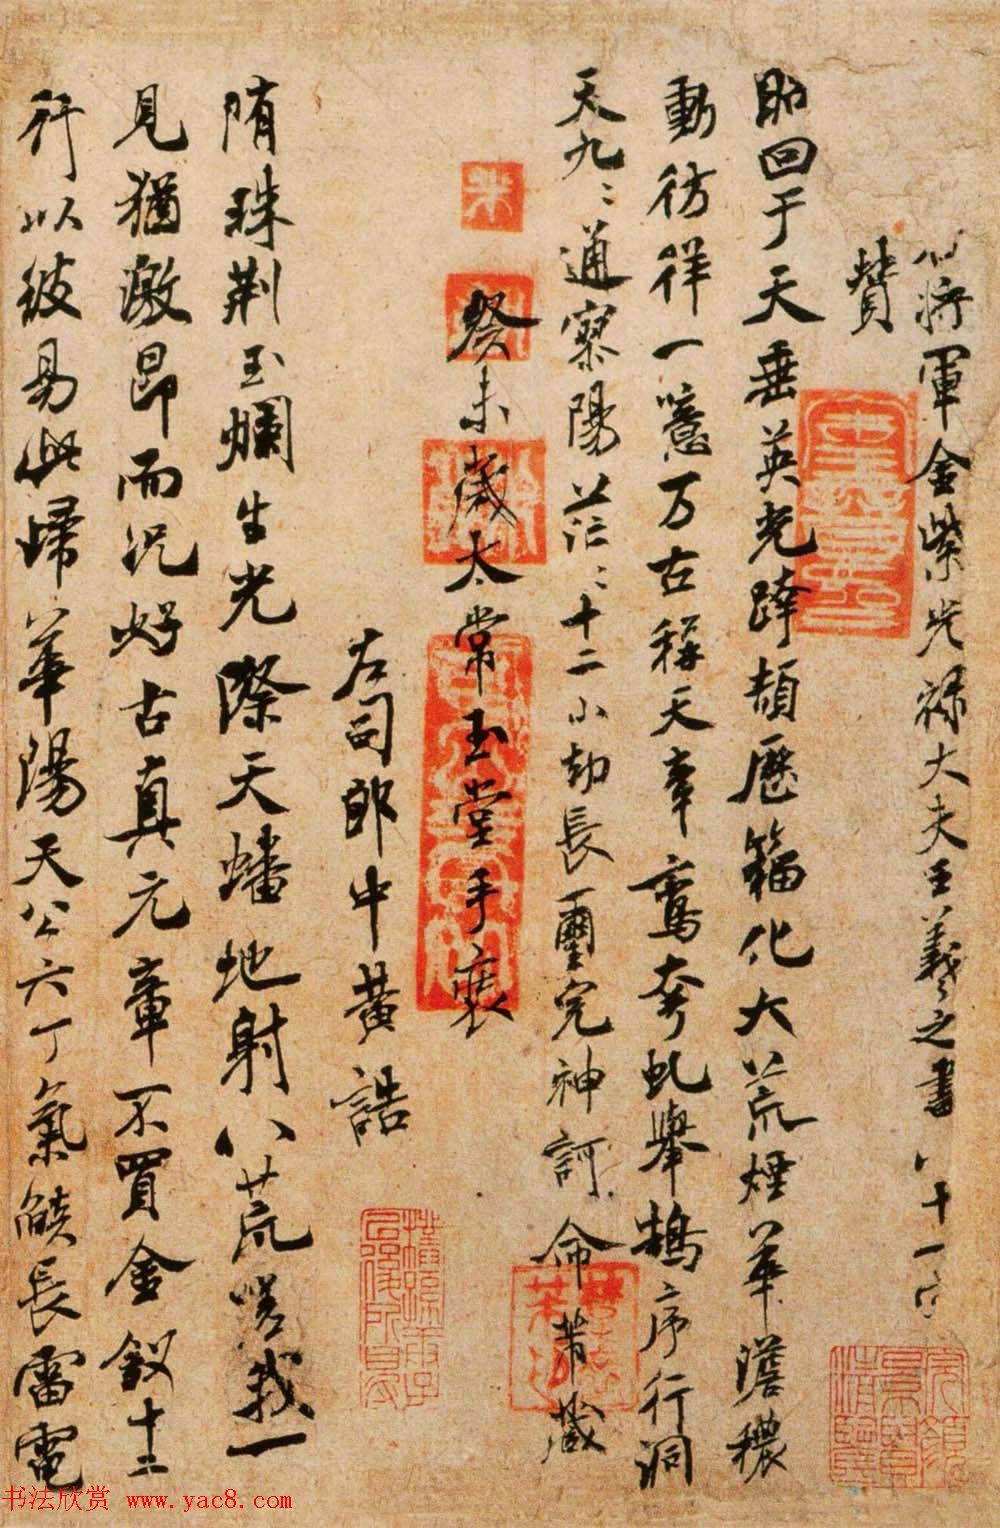 將軍金紫光祿大夫王羲之書 八十一字
贊
昭回于天垂英光跨頡歷籀化大荒煙華澹穠
動彷徉一噫万古稱天章鸞夸虬舉鵠序行洞
天九〻通寥陽茫〻十二小劫長璽完神訶命芾藏
癸未歲太常玉堂手裝
左司郎中黃誥
隋珠荆玉爛生光際天蟠地射八荒嗟我一
見猶激昂而況好古真元章不買金釵十二
行以彼易此歸華陽天公六丁氣燄長雷電
书法欣赏 www.yac8.com